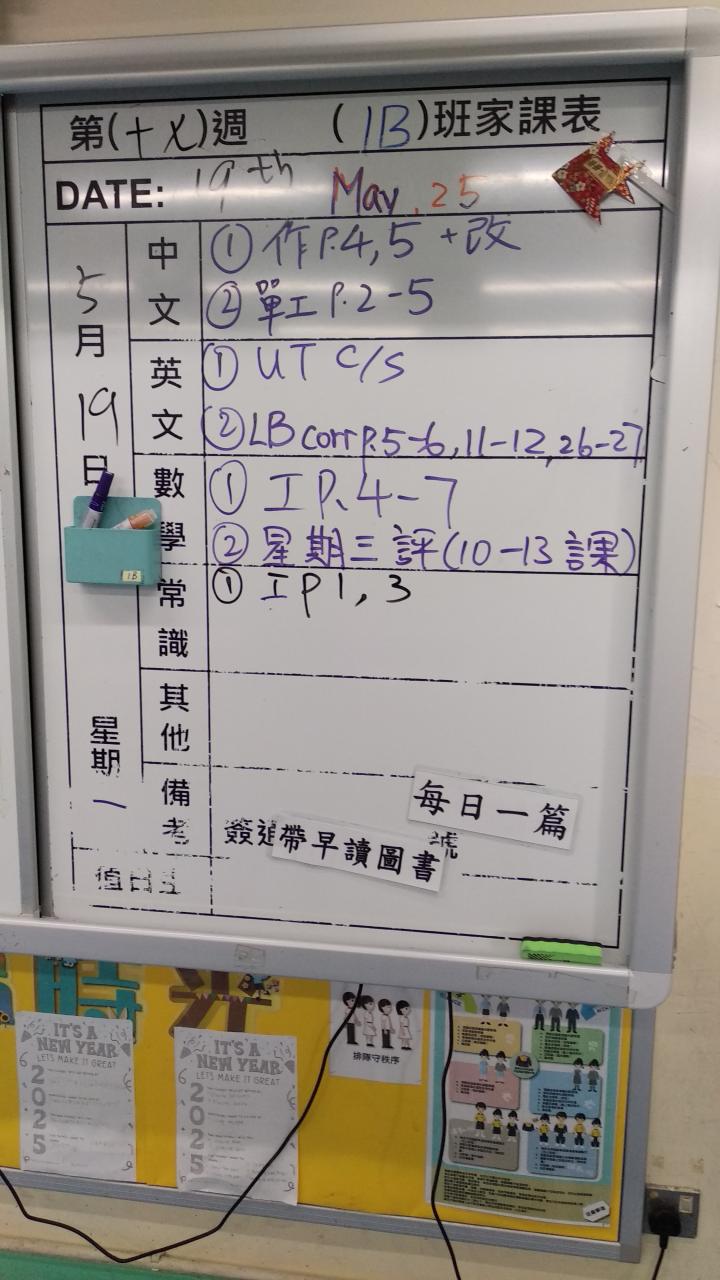 第(十七)週 (1B)班家課表
DATE: 19th May, 25
5月19日
星期一
中文
① 作P.4,5 +改
② 單工P.2-5
英文
① UT C/S
② LB corr P.5-6, 11-12, 26-27
數學
① 工P.4-7
② 星期三評(10-13課)
常識
① 工P1, 3
其他
備考
每日一篇
帶早讀圖書
號
1B
IT'S A NEW YEAR
LET'S MAKE IT GREAT
2025
IT'S A NEW YEAR
LET'S MAKE IT GREAT
2025
排隊守秩序